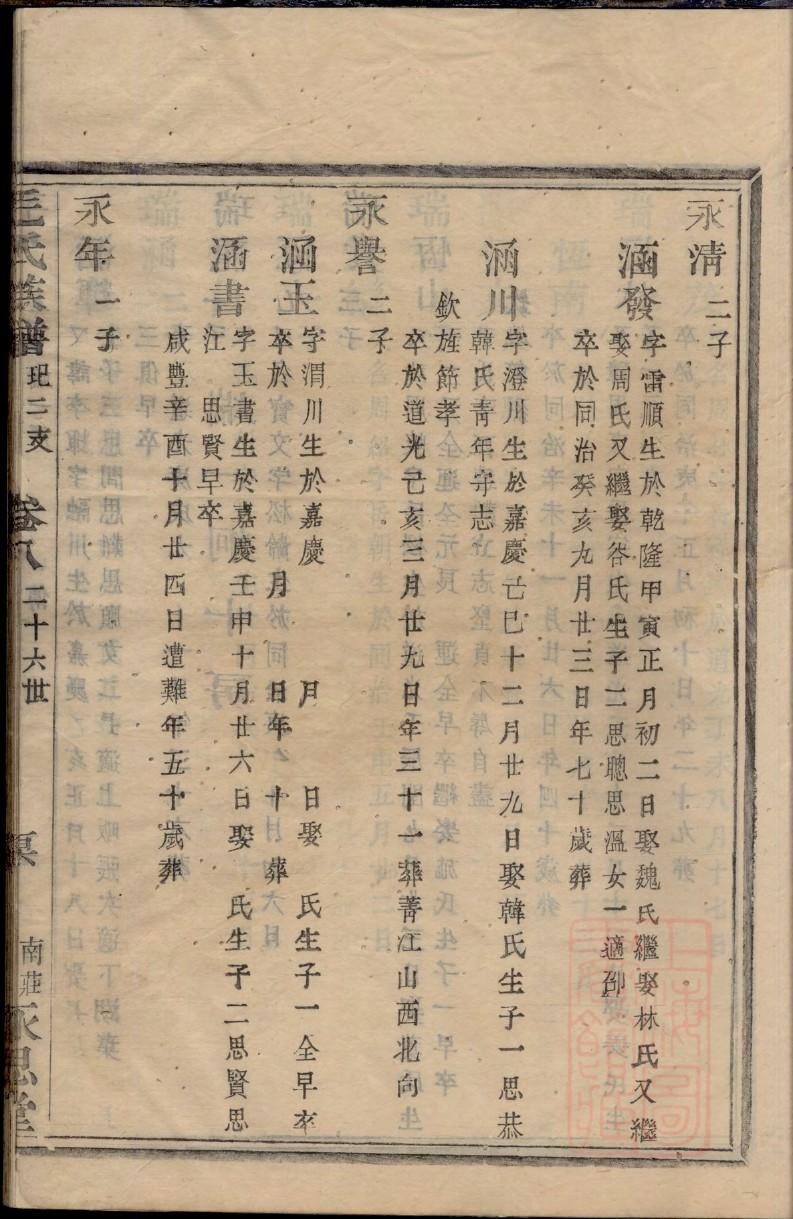 永清二子
涵發字雷順生於乾隆甲寅正月初二日娶魏氏繼娶林氏又繼
娶周氏又繼娶咎氏生子二思聰思溫女一適邵
卒於同治癸亥九月廿三日年七十歲葬
涵川字澄川生於嘉慶己巳十二月廿九日娶韓氏生子一思恭
韓氏青年守志
欽旌節孝
卒於道光己亥三月廿九日年三十一葬菁江山西北向
永譽二子
涵玉字渭川生於嘉慶 月 日娶 氏生子一全早卒
卒於 月 日年 十 葬
涵書字玉書生於嘉慶壬申十月廿六日娶 氏生子二思賢思
江 思賢早卒
咸豐辛酉十月廿四日遭難年五十歲葬
永年一子
毛氏族譜 玘二支 卷八 二十六世 南莊 永思堂